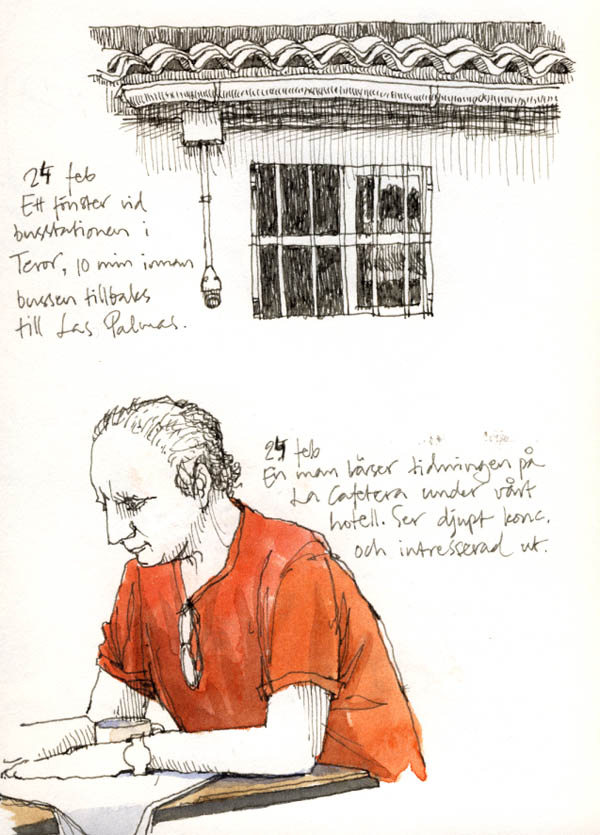 24 feb
Ett fönster vid
busstationen i
Teror, 10 min innan
bussen tillbaks
till Las Palmas.
24 feb
En man läser tidningen på
La Cafetera under vårt
hotell. Ser djupt konc.
och intresserad ut.